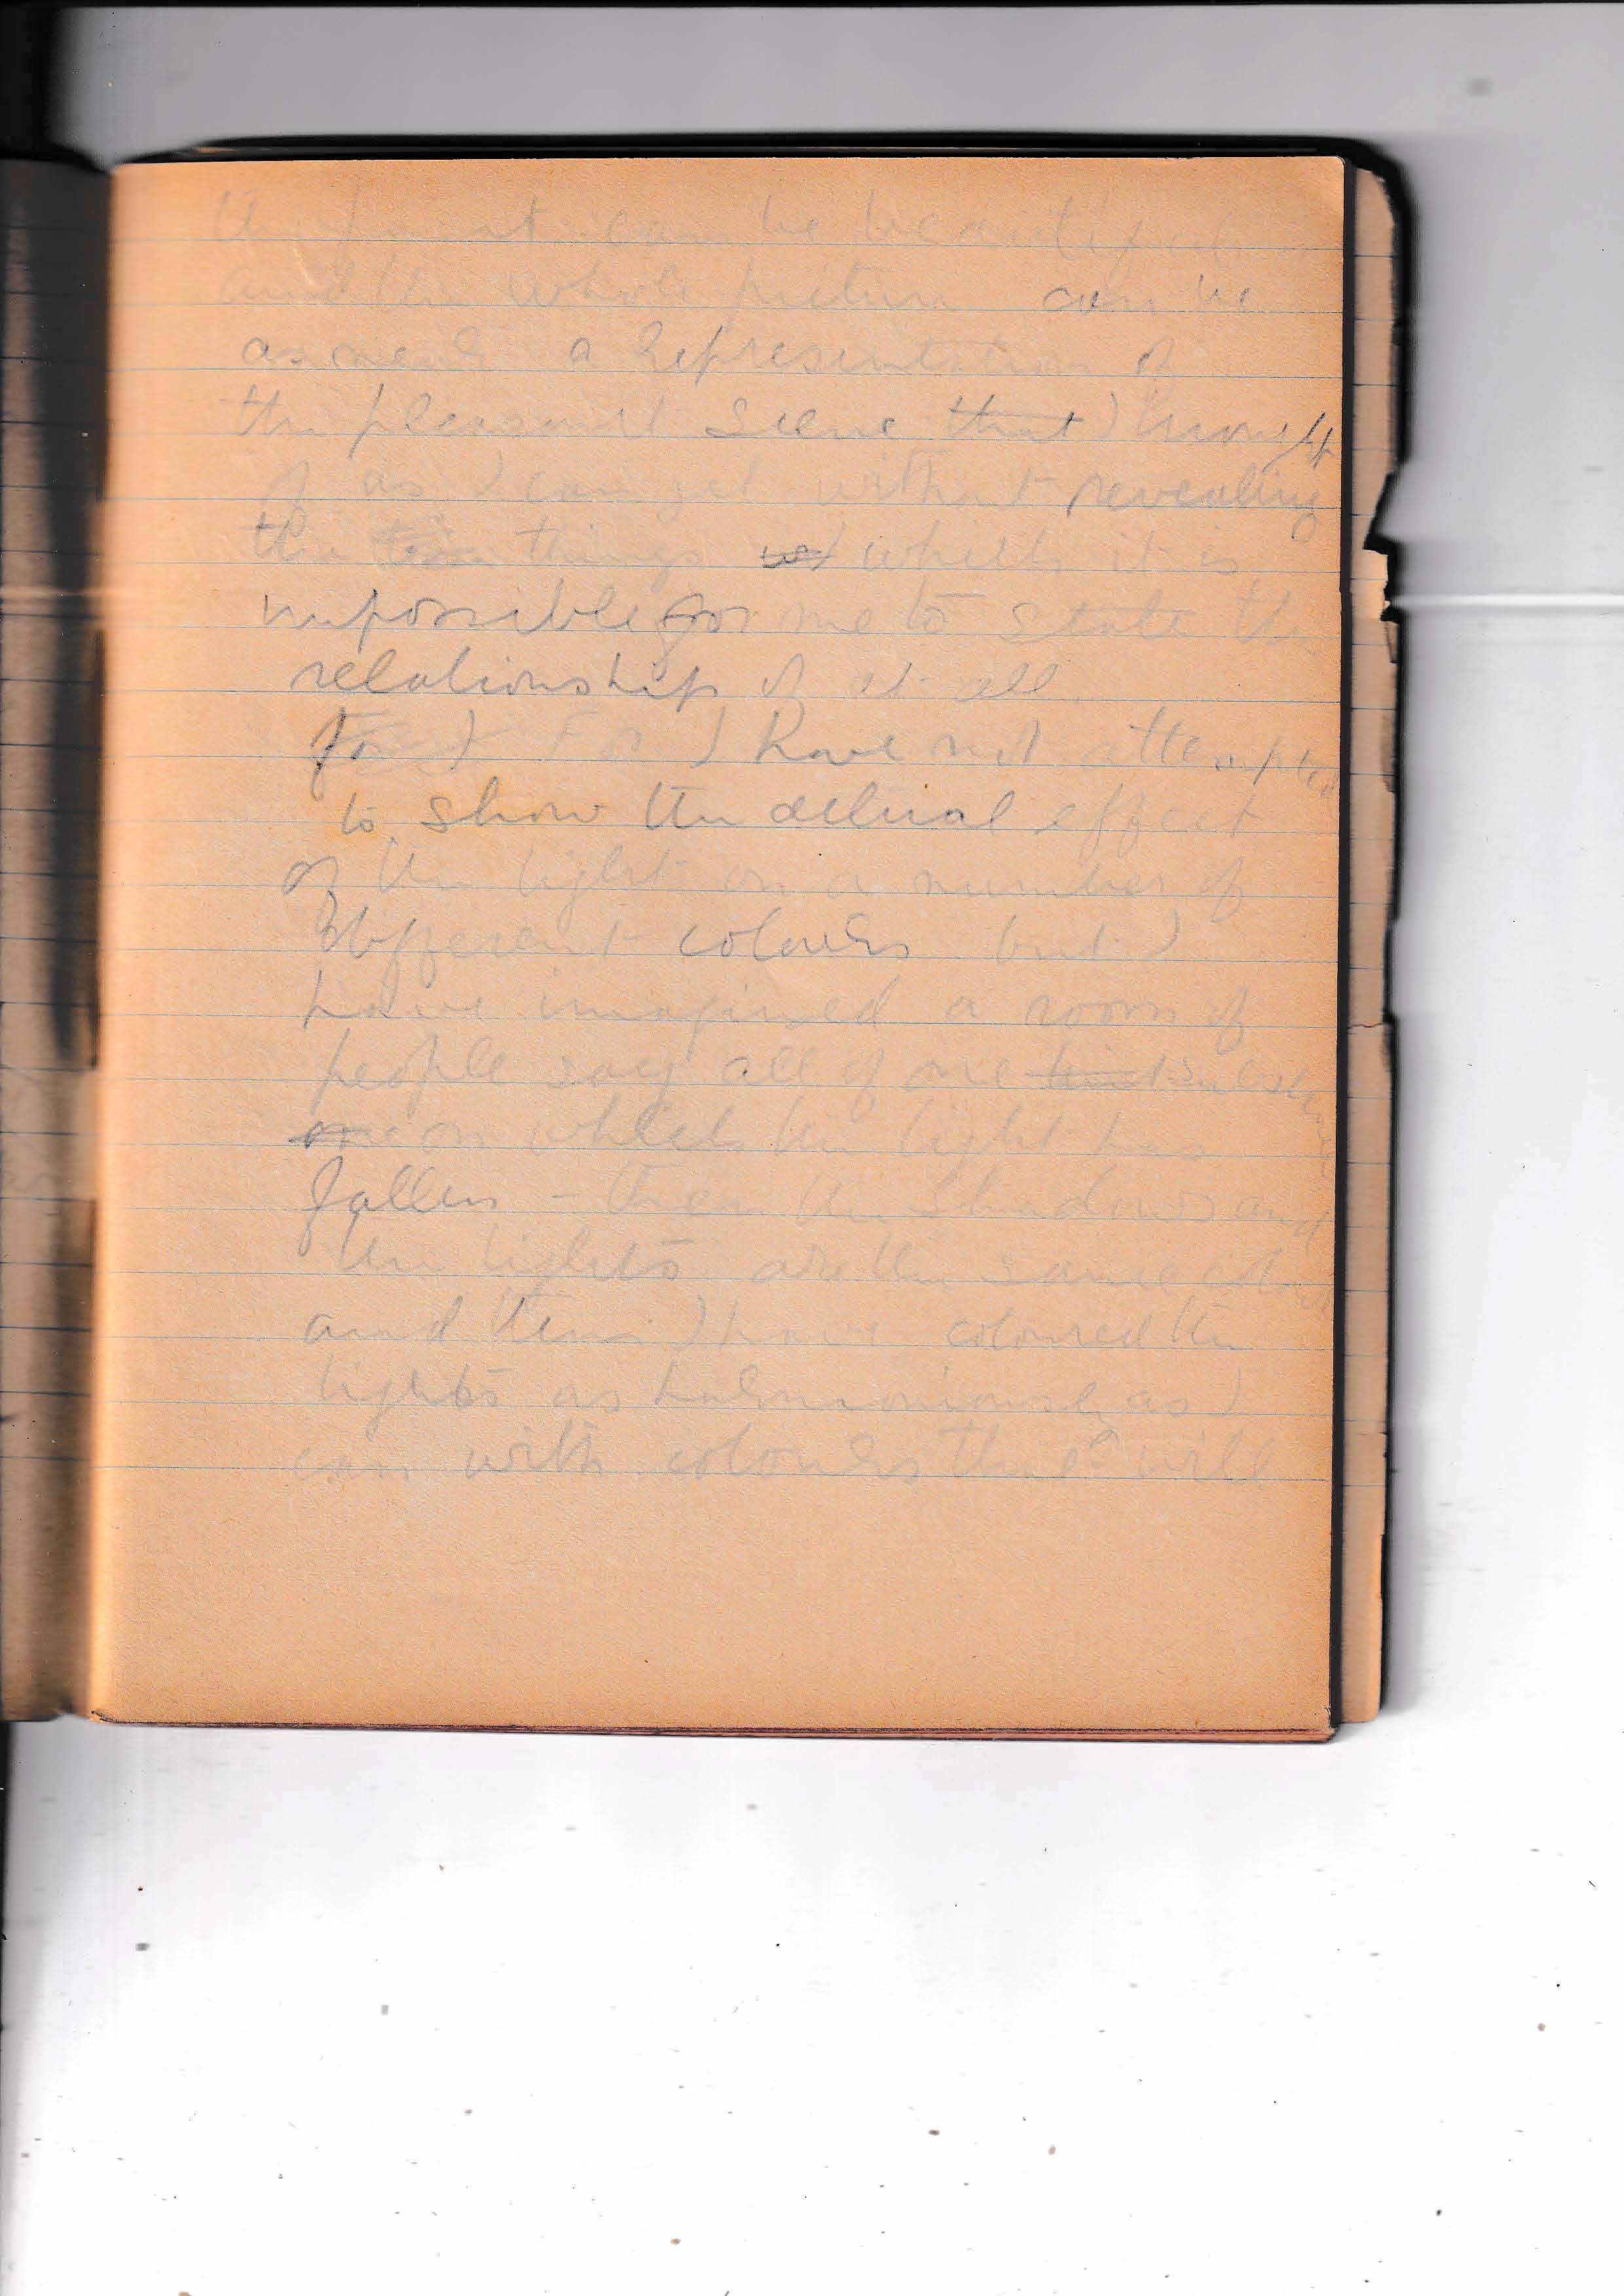 the paint can be beautiful
and the whole picture can be
as much a representation of
the pleasant scene that I thought
of as I can get without revealing
the things which it is
impossible for me to state the
relationship of at all.
For I For I have not attempted
to show the actual effect
of the light on a number of
different colours but I
have imagined a room of
people say all of one tint substance
one on which the light has
fallen – then the shadows and
the lights are the same colour
and then I have coloured the
lights as harmoniously as I
can with colours that will